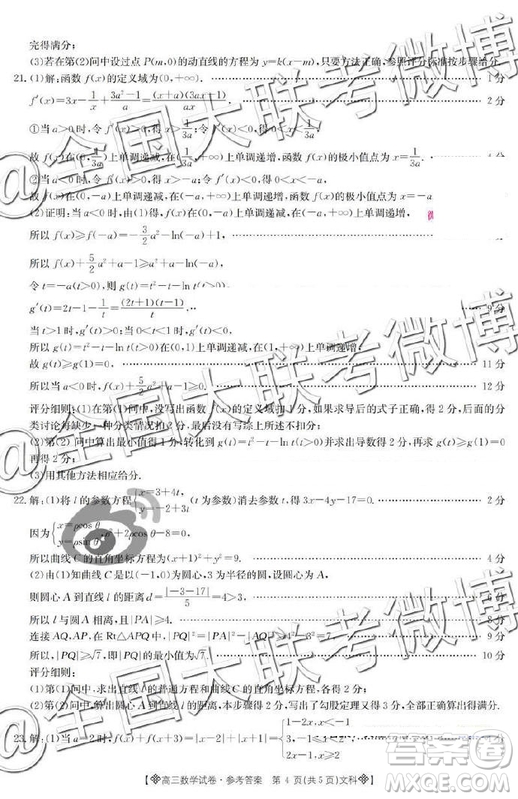 完得满分;
(3)若在第(2)问中设过点 P(m,0)的动直线的方程为 y=k(x-m),只要方法正确,参照评分标准按步给分.
21.(1)解:函数 f(x)的定义域为(0,+∞). 1 分
f′(x)=3x-1/x+(3a²-1)/a=(x+a)(3ax-1)/(ax). 2 分
①当 a>0 时,令 f′(x)>0,得 x>1/(3a),令 f′(x)<0,得 0<x<1/(3a),
故 f(x)在(0,1/(3a))上单调递减,在(1/(3a),+∞)上单调递增,函数 f(x)的极小值点为 x=1/(3a).
故 f(x)在(0,-a)上单调递减,在(-a,+∞)上单调递增,函数 f(x)的极小值点为 x=-a
(2)证明:当 a<0 时,由(1)得,f(x)在(0,-a)上单调递减,在(-a,+∞)上单调递增,
所以 f(x)≥f(-a)=-3/2a²+1-ln(-a),
所以 f(x)+5/2a²+a-1≥a²+a-ln(-a).
令 t=-a(t>0),则 g(t)=t²-t-ln t(t>0),
g′(t)=2t-1-1/t=(2t+1)(t-1)/t. 9 分
当 t>1 时,g′(t)>0;当 0<t<1 时,g′(t)<0.
所以 g(t)在(0,1)上单调递减,在(1,+∞)上单调递增.
故 g(t)≥g(1)=0. 11 分
所以当 a<0 时,f(x)+5/2a²+a≥1. 12 分
评分细则:(1)在第(1)问中,没写出函数 f(x)的定义域扣 1 分,求导以后的式子正确,得 2 分,后面的分类讨论每缺少一种分类情况扣 2 分.
(2)第(2)问中算出最小值得 1 分,转化到 g(t)=t²-t-ln t 并求出导数得 2 分,再求出 g(t)≥g(1)=0 得 2 分,
(3)用其他方法相应给分.
22.解:(1)将 l 的参数方程{x=3+4t, y=-2+3t (t 为参数)消去参数 t,得 3x-4y-17=0. 2 分
因为{x=ρcos θ, y=ρsin θ, ρ²+2ρcos θ-8=0,
所以曲线 C 的直角坐标方程为(x+1)²+y²=9. 4 分
(2)由(1)知曲线 C 是以(-1,0)为圆心,3 为半径的圆,设圆心为 A,
则圆心 A 到直线 l 的距离 d=|-3-17|/5=4>3, 6 分
所以 l 与圆 A 相离,且|PA|≥4. 8 分
连接 AQ,AP,在 Rt△APQ 中,|PQ|²=|PA|²-|AQ|²≥4²-3²=7, 9 分
所以,|PQ|≥√7,即|PQ|的最小值为√7. 10 分
评分细则:
(1)第(1)问中,求出直线 l 的普通方程和曲线 C 的直角坐标方程,各得 2 分;
(2)第(2)问中,
23.解:(1)当 a=2 时,f(x)+f(x+3)=|x-2|+|x+1|={1-2x,x<-1 3,-1≤x<2 2x-1,x≥2
高三数学试卷·参考答案 第 4 页(共 5 页)文科
@全国大联考微博
@全国大联考微博
@全国大联考微博